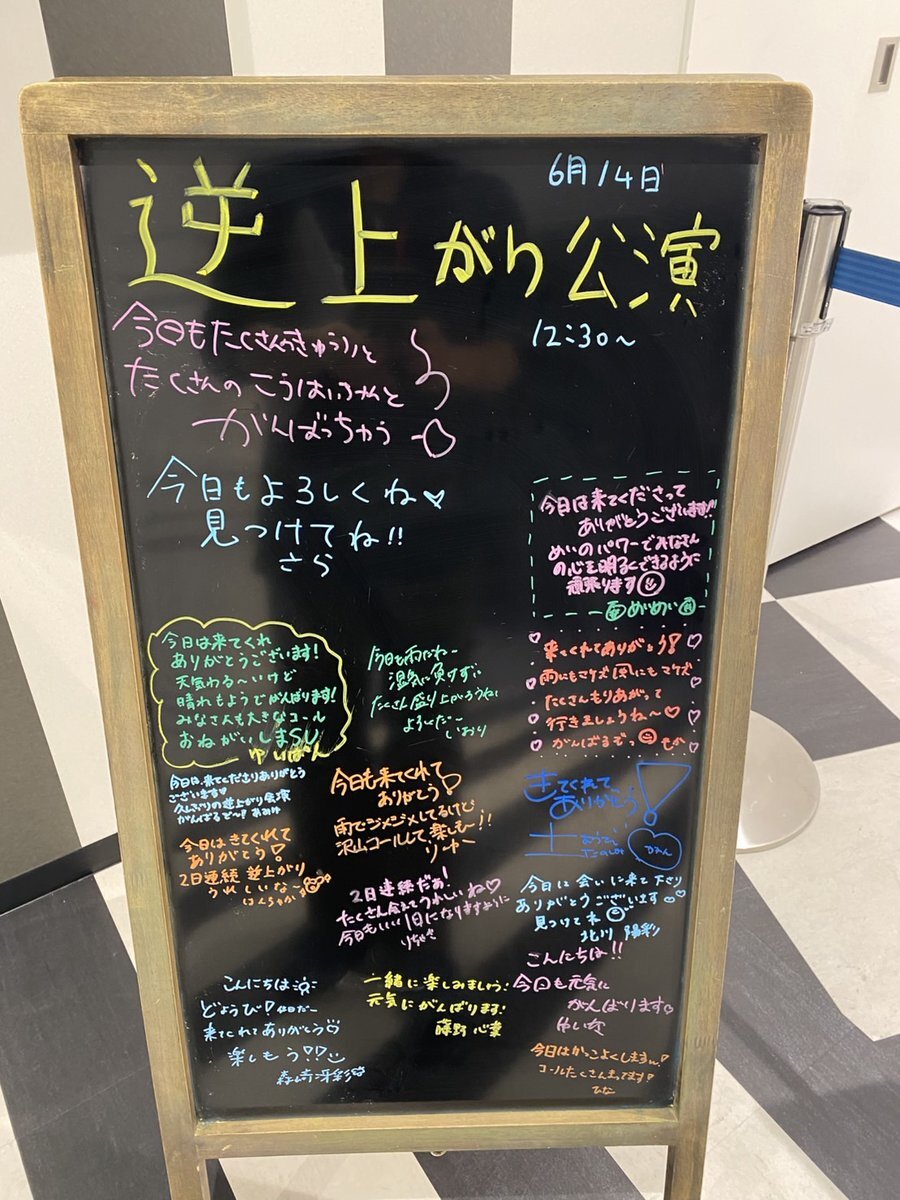 6月14日
逆上がり公演
12:30〜
今日もたくさん
たくさんのこうはいちゃんと
がんばっちゃう
今日もよろしくね♡
見つけてね!!
さら
今日は来てくださって
ありがとうございます!!
めいのパワーでみなさん
の心を明るくできるように
頑張ります☺
めいめい
今日は来てくれ
ありがとうございます!
天気わる〜いけど
晴れもようでがんばります!
みなさんも大きなコール
おねがいしまSU
ゆいぱん
今日も雨だね〜
湿気に負けずに
たくさん盛り上がろうね
よろしくだ〜
いおり
来てくれてありがとう!
雨にもマケズ風にもマケズ
たくさんもりあがって
行きましょうね〜♡
がんばるぞっ☺ もか
今日は来てくださりありがとう
ございます
久しぶりの逆上がり公演
がんばるぞ〜! あみゆ
今日も来てくれて
ありがとう!
雨でジメジメしてるけど
沢山コールして楽しも〜!!
りゆー
きてくれて
ありがとう!
土ようび
たのしも
今日はきてくれて
ありがとう!
2日連続逆上がり
うれしいな〜
2日連続だぁ!
たくさん会えてうれしいね♡
今日もいい1日になりますように
今日は会いに来て下さり
ありがとうございます
見つけてネ☺
北川 陽彩
こんにちは!!
今日も元気に
がんばります
ゆいな
こんにちは
どようび!休日だ〜
来てくれてありがとう♡
楽しもう!?☺
森﨑冴彩
一緒に楽しみましょう!
元気にがんばります!
藤野 心葉
今日はかっこよくします
コールたくさんまってます!
ひな